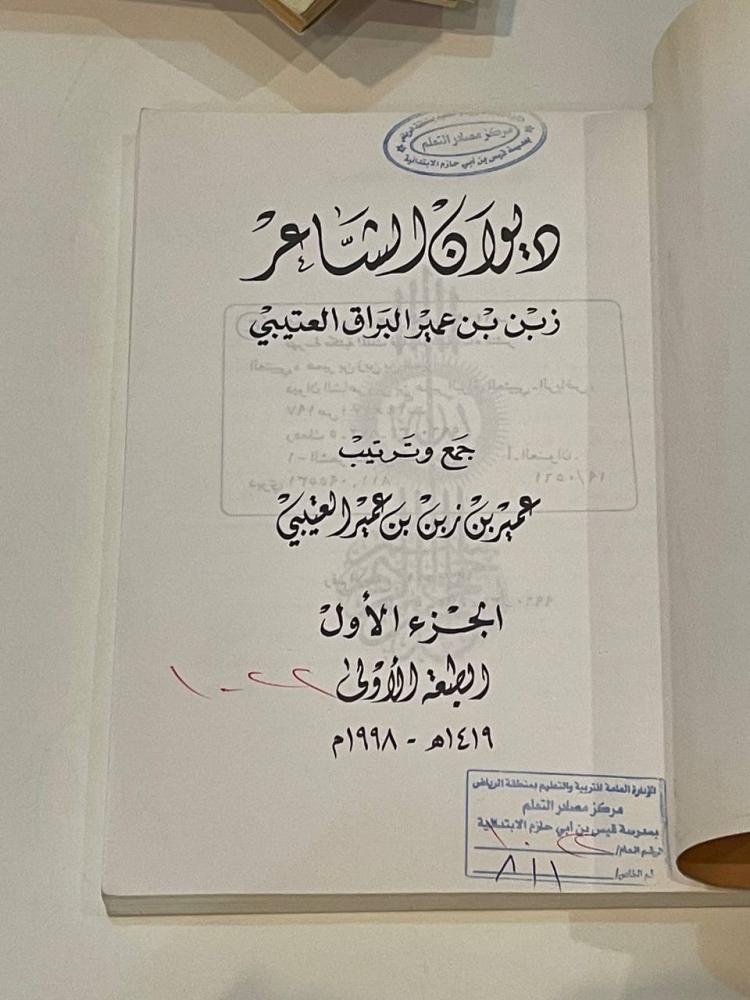 مركز مصادر التعلم
بمدرسة قيس بن أبي حازم الابتدائية
ديوان الشاعر
زبن بن عمير البراق العتيبي
جمع وترتيب
عمير بن زبن بن عمير العتيبي
الجزء الأول
الطبعة الأولى
١٤١٩هـ - ١٩٩٨م
الإدارة العامة للتربية والتعليم بمنطقة الرياض
مركز مصادر التعلم
بمدرسة قيس بن أبي حازم الابتدائية
الرقم العام/
الخاص/ ٨١١